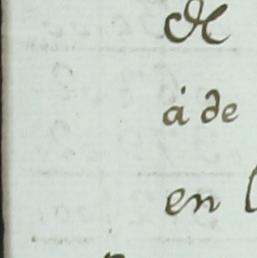 de
á de
en